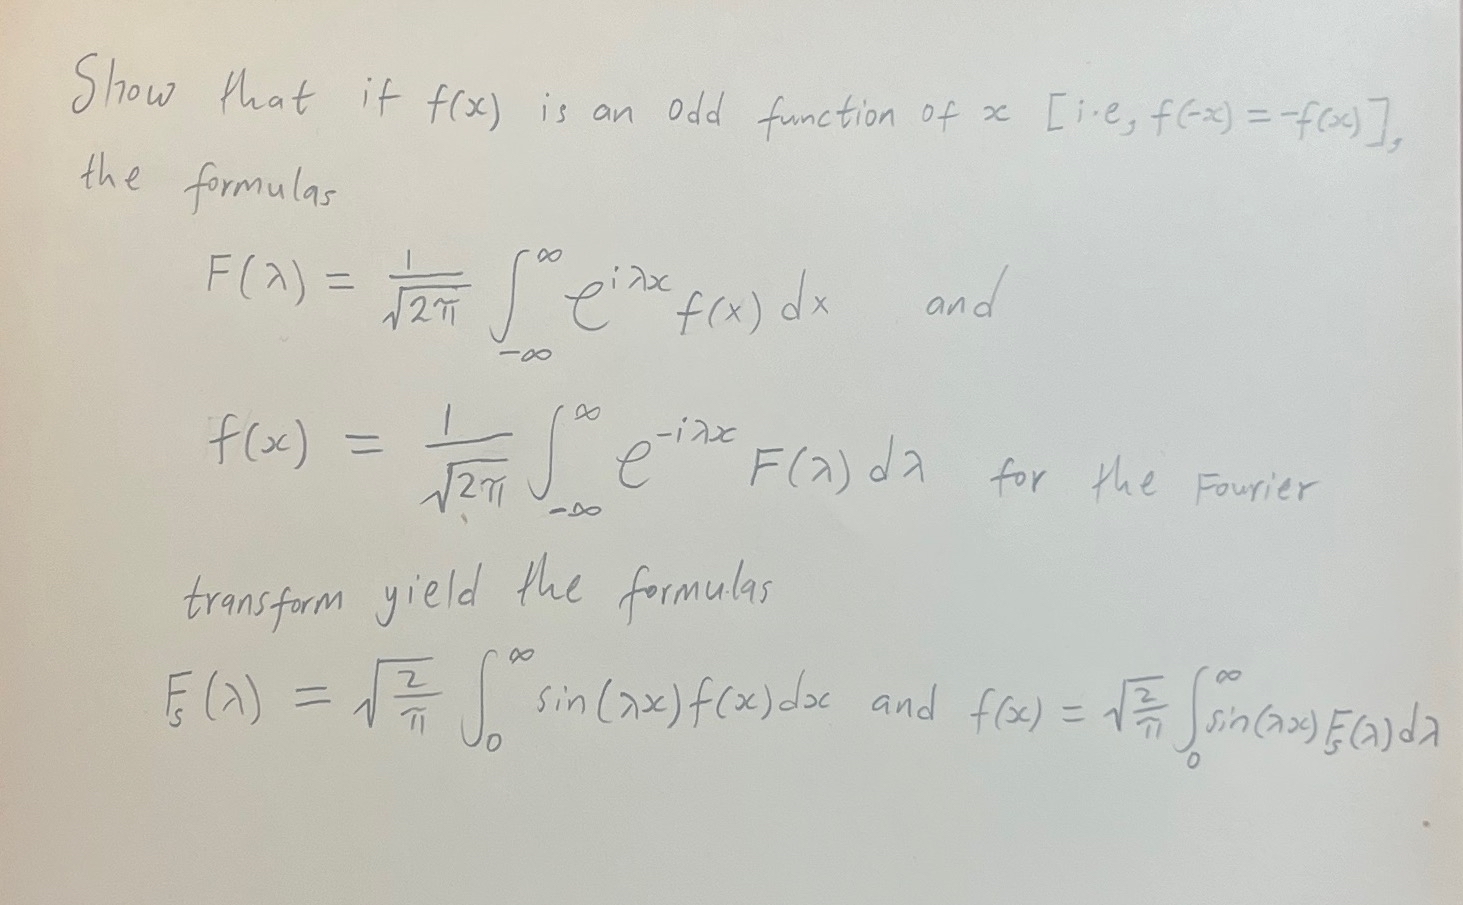 Show that if f(x) is an odd function of x [i.e, f(-x) = -f(x)],
the formulas
F(λ) = 1/√2π ∫_{-∞}^{∞} e^{iλx} f(x) dx and
f(x) = 1/√2π ∫_{-∞}^{∞} e^{-iλx} F(λ) dλ for the Fourier
transform yield the formulas
F_s(λ) = √(2/π) ∫_0^∞ sin(λx) f(x) dx and f(x) = √(2/π) ∫_0^∞ sin(λx) F_s(λ) dλ